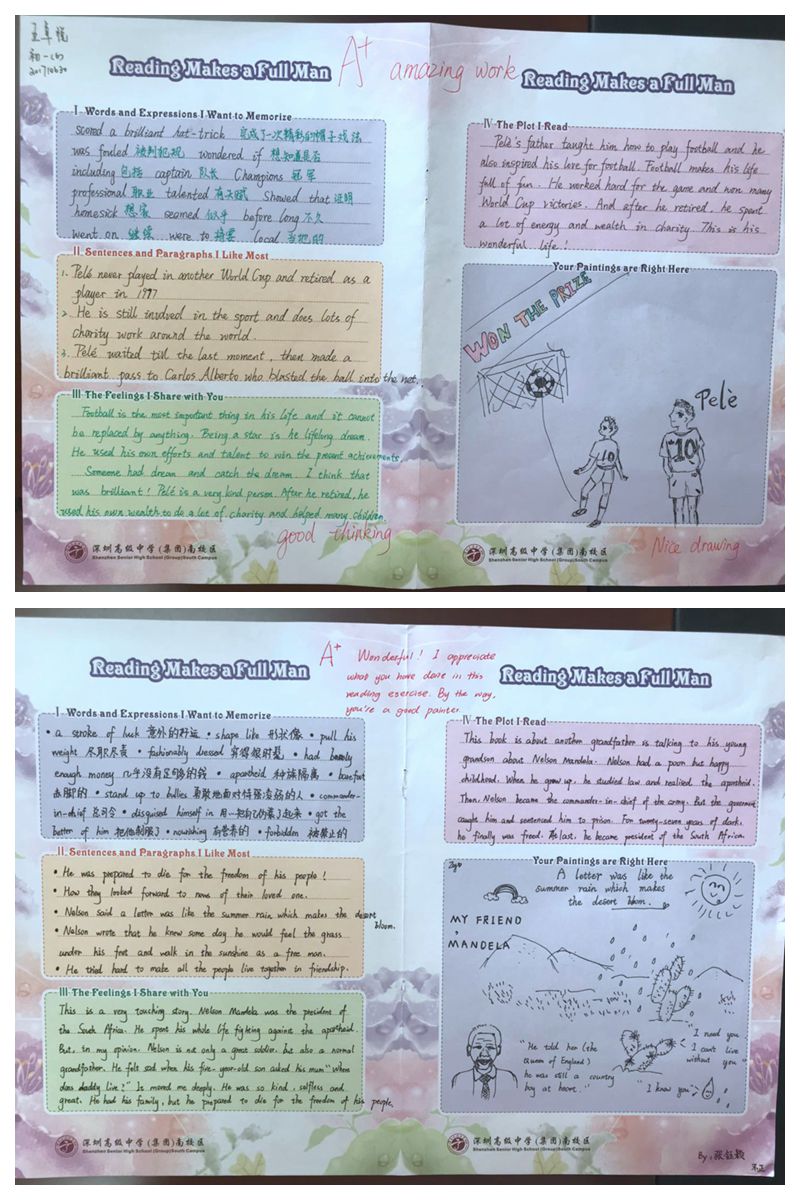 王章悦
初一(4)
20171030
Reading Makes a Full Man
A+ amazing work
Reading Makes a Full Man
I Words and Expressions I Want to Memorize
scored a brilliant hat-trick 完成了一次精彩的帽子戏法
was fouled 被判犯规 wondered if 想知道是否
including 包括 captain 队长 Champions 冠军
professional 职业 talented 有天赋 Showed that 证明
homesick 想家 seemed 似乎 before long 不久
went on 继续 were to 将要 local 当地的
II Sentences and Paragraphs I Like Most
1. Pelé never played in another World Cup and retired as a
player in 1977
2. He is still involved in the sport and does lots of
charity work around the world.
3. Pelé waited till the last moment, then made a
brilliant pass to Carlos Alberto who blasted the ball into the net.
III The Feelings I Share with You
Football is the most important thing in his life and it cannot
be replaced by anything. Being a star is he lifelong dream.
He used his own efforts and talent to win the present achievements.
Someone had dream and catch the dream. I think that
was brilliant! Pelé is a very kind person. After he retired, he
used his own wealth to do a lot of charity and helped many children
good thinking
深圳高级中学(集团)南校区
Shenzhen Senior High School (Group)South Campus
IV The Plot I Read
Pelé's father taught him how to play football and he
also inspired his love for football. Football makes his life
full of fun. He worked hard for the game and won many
World Cup victories. And after he retired, he spent
a lot of energy and wealth in charity. This is his
wonderful life!
Your Paintings are Right Here
WON THE PRIZE
Pelè
10
10
Nice drawing
深圳高级中学(集团)南校区
Shenzhen Senior High School (Group)South Campus
Reading Makes a Full Man
A+ Wonderful! I appreciate
what you have done in this
reading exercise. By the way,
you're a good painter.
Reading Makes a Full Man
I Words and Expressions I Want to Memorize
• a stroke of luck 意外的好运 • shape like 形状像 • pull his
weight 尽职尽责 • fashionably dressed 穿得很时髦 • had barely
enough money 几乎没有足够的钱 • apartheid 种族隔离 • barefoot
赤脚的 • stand up to bullies 勇敢地面对恃强凌弱的人 • commander-
in-chief 总司令 • disguised himself in 用…把自己伪装了起来 • got the
better of him 把他制服了 • nourishing 有营养的 • forbidden 被禁止的
II Sentences and Paragraphs I Like Most
• He was prepared to die for the freedom of his people!
• How they looked forward to news of their loved one.
• Nelson said a letter was like the summer rain which makes the desert
bloom.
• Nelson wrote that he knew some day he would feel the grass
under his feet and walk in the sunshine as a free man.
• He tried hard to make all the people live together in friendship.
III The Feelings I Share with You
This is a very touching story. Nelson Mandela was the president of
the South Africa. He spent his whole life fighting against the apartheid.
But, in my opinion, Nelson is not only a great soldier, but also a normal
grandfather. He felt sad when his five-year-old son asked his mum "Where
does daddy live?" It moved me deeply. He was so kind, selfless and
great. He had his family, but he prepared to die for the freedom of his people.
深圳高级中学(集团)南校区
Shenzhen Senior High School (Group)South Campus
IV The Plot I Read
This book is about another grandfather is talking to his young
grandson about Nelson Mandela. Nelson had a poor but happy
childhood. When he grow up, he studied law and realised the apartheid.
Then, Nelson became the commander-in-chief of the army. But the government
caught him and sentenced him to prison. For twenty-seven years of dark,
he finally was freed. At last, he became president of the South Africa.
Your Paintings are Right Here
A letter was like the
summer rain which makes
the desert bloom.
MY FRIEND
, MANDELA
"He told her (the
Queen of England)
he was still a country
boy at heart."
"I need you
I can't live
without you"
"I know you"
深圳高级中学(集团)南校区
Shenzhen Senior High School (Group)South Campus
By: 张钰颖